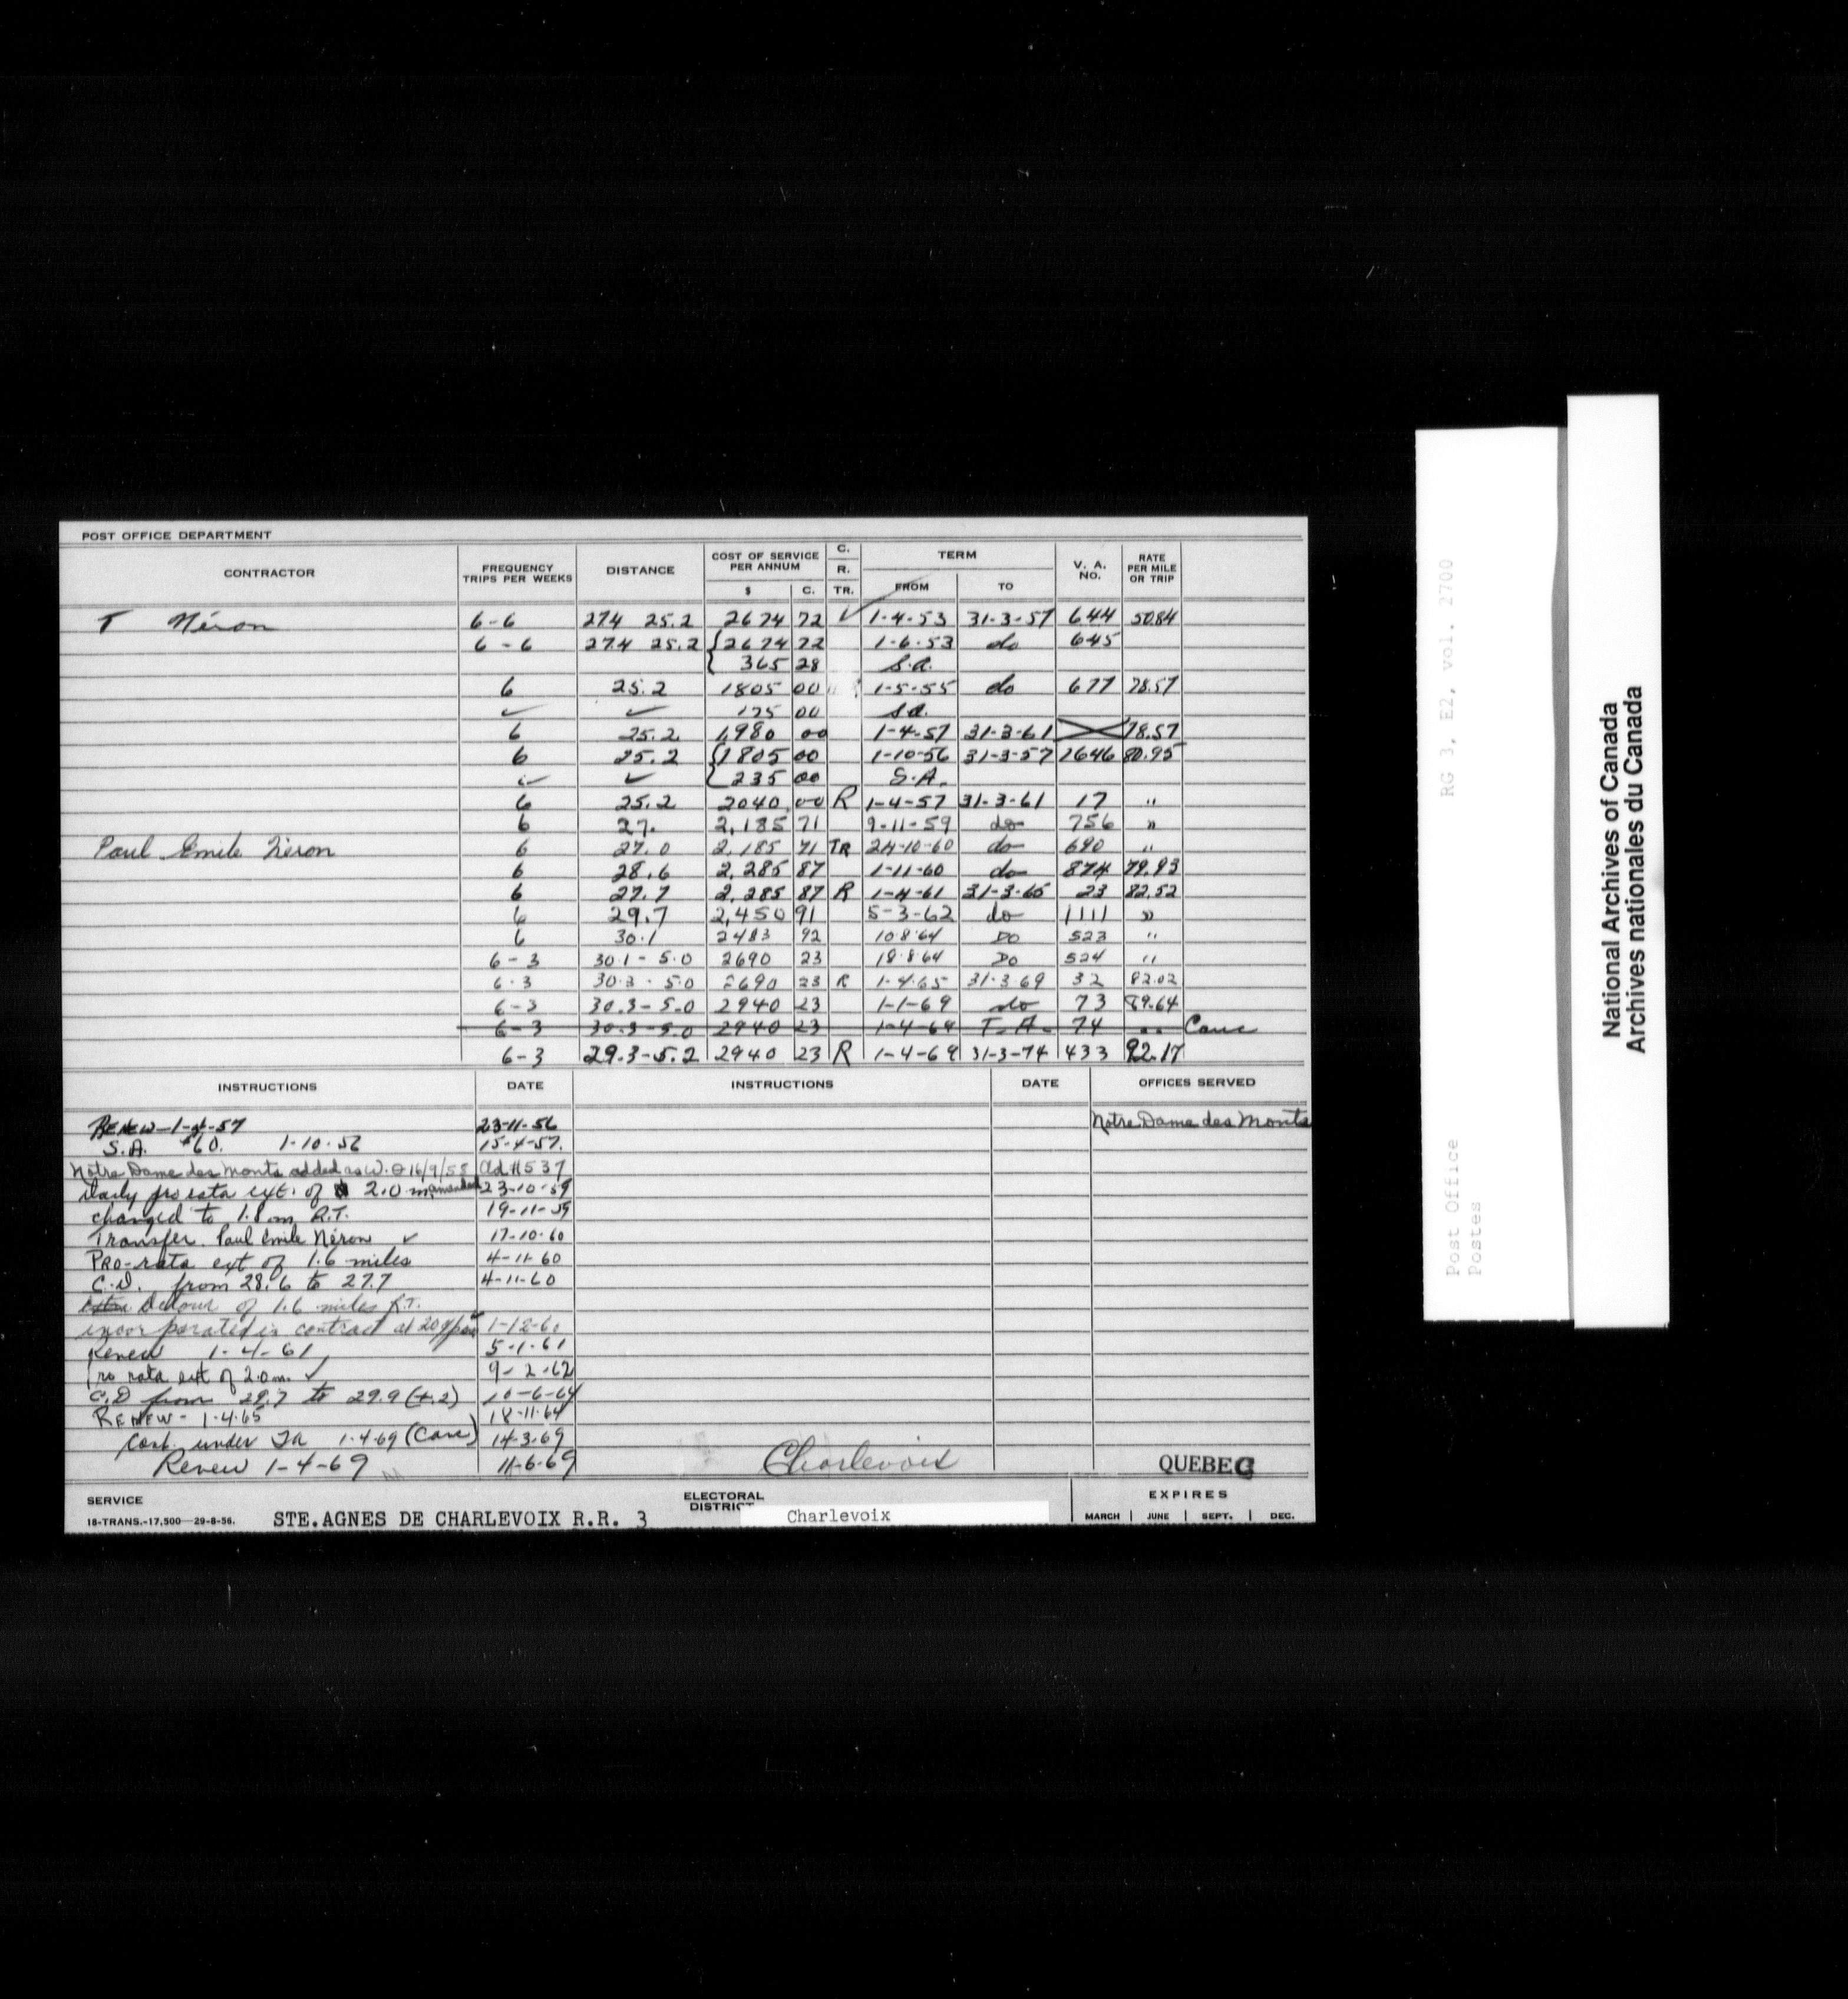 POST OFFICE DEPARTMENT
CONTRACTOR FREQUENCY TRIPS PER WEEKS DISTANCE COST OF SERVICE PER ANNUM $ C. C. R. TR. TERM FROM TO V. A. NO. RATE PER MILE OR TRIP
T Néron 6-6 27.4 25.2 2674 72 ✓ 1-4-53 31-3-57 644 50.84
6-6 27.4 25.2 2674 72 1-6-53 do 645
365 28 S.A.
6 25.2 1805 00 1-5-55 do 677 78.57
✓ ✓ 175 00 S.A.
6 25.2 1,980 00 1-4-57 31-3-61 78.57
6 25.2 1805 00 1-10-56 31-3-57 1646 80.95
✓ ✓ 235 00 S.A.
6 25.2 2040 00 R 1-4-57 31-3-61 17 "
6 27. 2,185 71 9-11-59 do 756 "
Paul Emile Néron 6 27.0 2,185 71 TR 24-10-60 do 690 "
6 28.6 2,285 87 1-11-60 do 874 79.93
6 27.7 2,285 87 R 1-4-61 31-3-65 23 82.52
6 29.7 2,450 91 5-3-62 do 1111 "
6 30.1 2483 92 10·8·64 Do 523 "
6-3 30.1 - 5.0 2690 23 18·8·64 Do 524 "
6-3 30.3 - 5.0 2690 23 R 1-4-65 31-3-69 32 82.02
6-3 30.3-5.0 2940 23 1-1-69 do 73 89.64
6-3 30.3-5.0 2940 23 1-4-69 T.A. 74 " Canc
6-3 29.3-5.2 2940 23 R 1-4-69 31-3-74 433 92.17
INSTRUCTIONS DATE INSTRUCTIONS DATE OFFICES SERVED
RENEW-1-4-57 23-11-56 Notre Dame des Monts
S.A. $60. 1-10-56 15-4-57.
Notre Dame des Monts added as W.O 16/9/58 Ad #537
Daily pro rata ext. of 2.0 m amended 23-10-59
changed to 1.8 m R.T. 19-11-59
Transfer. Paul Emile Néron ✓ 17-10-60
PRO-rata ext of 1.6 miles 4-11-60
C.D. from 28.6 to 27.7 4-11-60
Detour of 1.6 miles R.T.
incorporated in contract at 1-12-60
Renew 1-4-61 5-1-61
Pro rata ext of 2.0 m. ✓ 9-2-62
C.D from 29.7 to 29.9 (+.2) 10-6-64
RENEW - 1·4·65 18-11-64
Cont. under TA 1-4-69 (Canc) 14-3-69
Renew 1-4-69 11-6-69
Charlevoix QUEBEC
SERVICE STE.AGNES DE CHARLEVOIX R.R. 3 ELECTORAL DISTRICT Charlevoix EXPIRES
18-TRANS.-17,500—29-8-56. MARCH | JUNE | SEPT. | DEC.
RG 3, E2, vol. 2700
Post Office
Postes
National Archives of Canada
Archives nationales du Canada